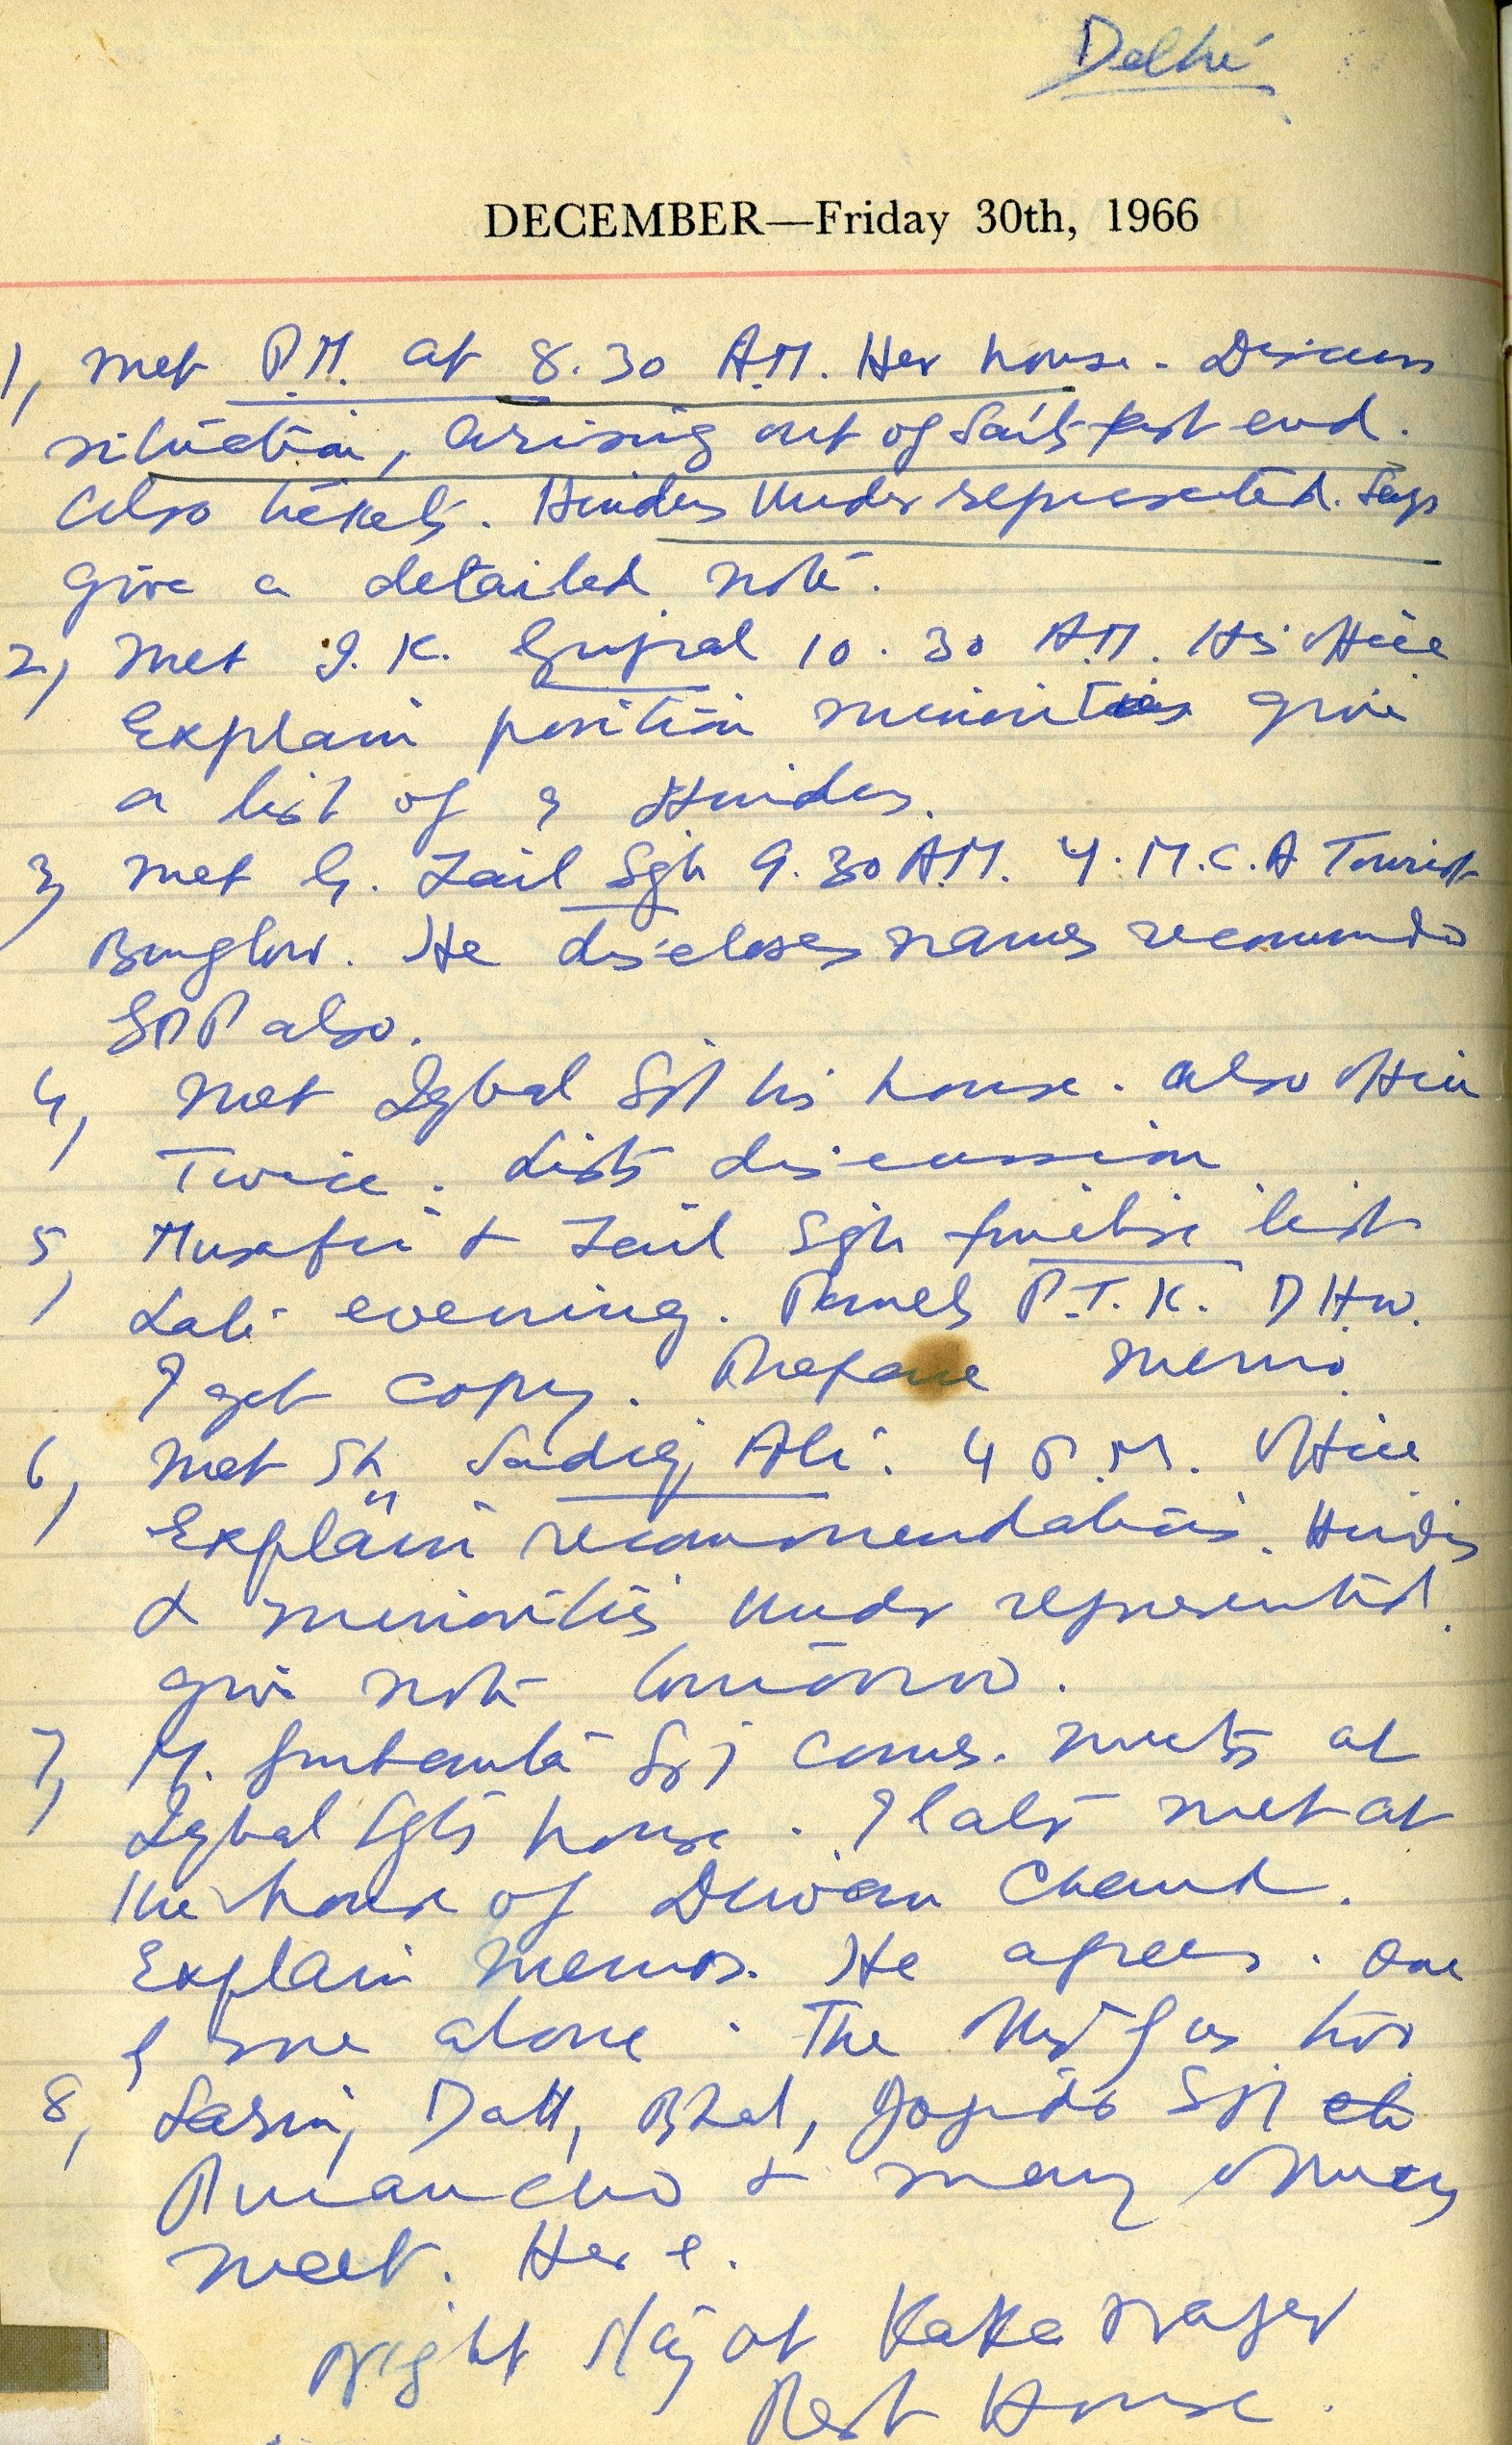 Delhi
DECEMBER—Friday 30th, 1966
1, Met P.M. at 8.30 A.M. Her house. Discuss
situation, arising out of Sant's fast end.
Also tickets. Hindus under represented. Says
give a detailed note.
2, Met I.K. Gujral 10.30 A.M. His office
Explain position minorities give
a list of 9 Hindus.
3, Met G. Zail Sgh 9.30 A.M. Y.M.C.A Tourist
Bunglow. He discloses names
also.
4, Met Iqbal his house. Also office
Twice. Lists discussion
5, Musafir & Zail Sgh list
Late evening. P.T.K.
I get copy. Prepare memo.
6, Met Sh. Sadiq Ali. 4 P.M. office
Explain recommendations. Hindus
& minorities under represented.
give note tomorrow.
7, M. comes. meets at
Iqbal Sgh's house. I later met at
the house of Dewan Chand.
Explain memos. He agrees. One
me alone. The
8, Datt, & many others
meet. Here.
Night stay at Kaka Nager
Rest House.